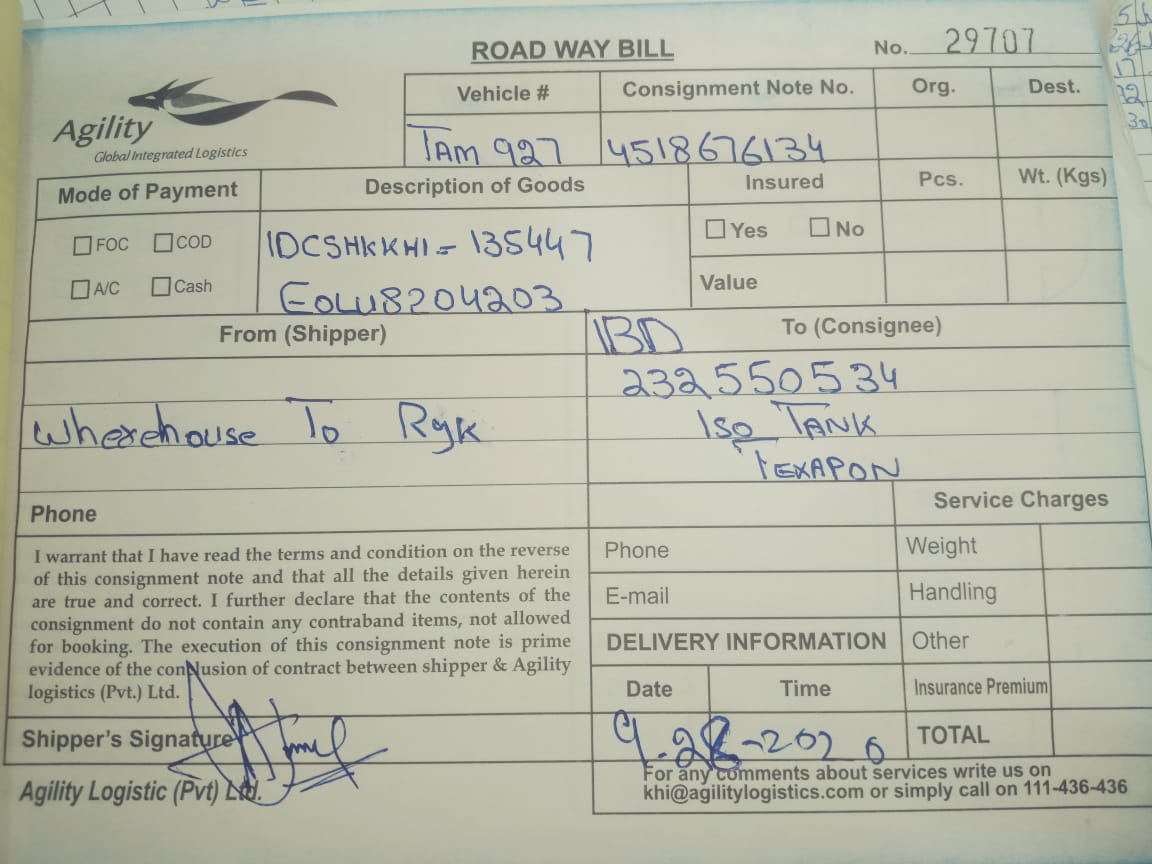 ROAD WAY BILL
No. 29707
Agility
Global Integrated Logistics
Vehicle #
Consignment Note No.
Org.
Dest.
TAM 927
4518676134
Mode of Payment
Description of Goods
Insured
Pcs.
Wt. (Kgs)
FOC
COD
A/C
Cash
IDCSHKKHI - 135447
EOLU8204203
Yes
No
Value
From (Shipper)
To (Consignee)
IBD
232550534
Wherehouse To Ryk
ISO TANK
TEXAPON
Phone
Service Charges
I warrant that I have read the terms and condition on the reverse
of this consignment note and that all the details given herein
are true and correct. I further declare that the contents of the
consignment do not contain any contraband items, not allowed
for booking. The execution of this consignment note is prime
evidence of the conclusion of contract between shipper & Agility
logistics (Pvt.) Ltd.
Phone
E-mail
Weight
Handling
DELIVERY INFORMATION
Other
Date
Time
Insurance Premium
Shipper's Signature
TOTAL
Agility Logistic (Pvt) Ltd.
For any comments about services write us on
khi@agilitylogistics.com or simply call on 111-436-436